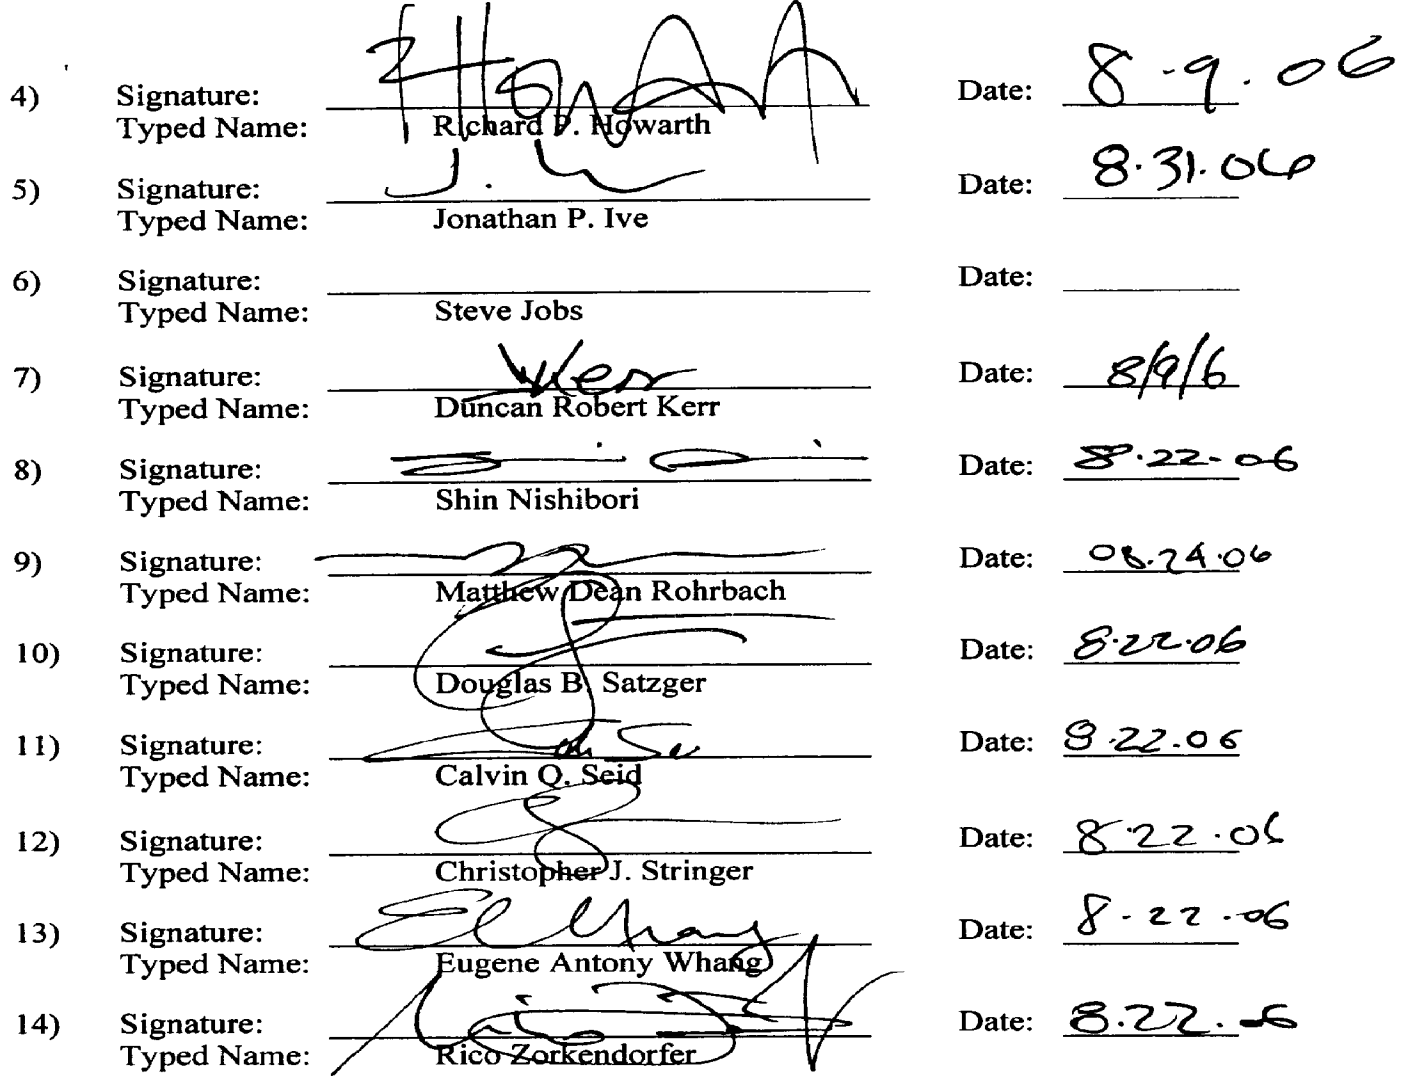 4) Signature: R Howarth Date: 8.9.06
Typed Name: Richard P. Howarth
5) Signature: J. Date: 8.31.06
Typed Name: Jonathan P. Ive
6) Signature: Date:
Typed Name: Steve Jobs
7) Signature: Kerr Date: 8/9/6
Typed Name: Duncan Robert Kerr
8) Signature: Date: 8.22.06
Typed Name: Shin Nishibori
9) Signature: Date: 08.24.06
Typed Name: Matthew Dean Rohrbach
10) Signature: Date: 8.22.06
Typed Name: Douglas B. Satzger
11) Signature: Date: 8.22.06
Typed Name: Calvin Q. Seid
12) Signature: Date: 8.22.06
Typed Name: Christopher J. Stringer
13) Signature: Whang Date: 8.22.06
Typed Name: Eugene Antony Whang
14) Signature: Date: 8.22.06
Typed Name: Rico Zorkendorfer